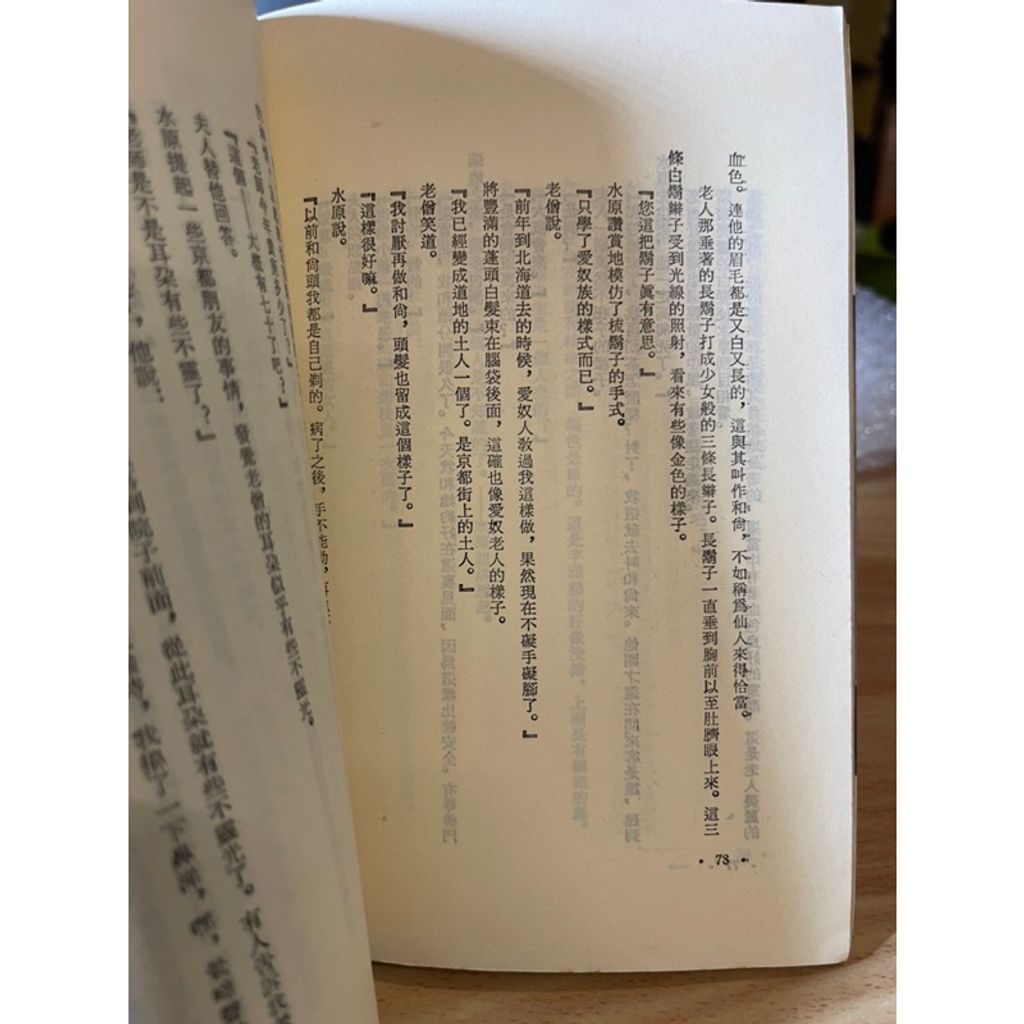 血色。連他的眉毛都是又白又長的，這與其叫作和尙，不如稱爲仙人來得恰當。
老人那垂著的長鬍子打成少女般的三條長辮子。長鬍子一直垂到胸前以至肚臍眼上來。這三
條白鬍辮子受到光線的照射，看來有些像金色的樣子。
『您這把鬍子眞有意思。』
水原讚賞地模仿了梳鬍子的手式。
『只學了愛奴族的樣式而已。』
老僧說。
『前年到北海道去的時候，愛奴人敎過我這樣做，果然現在不礙手礙腳了。』
將豐滿的蓬頭白髮束在腦袋後面，這確也像愛奴老人的樣子。
『我已經變成道地的土人一個了。是京都街上的土人。』
老僧笑道。
『我討厭再做和尙，頭髮也留成這個樣子了。』
『這樣很好嘛。』
水原說。
『以前和尙頭我都是自己剃的。病了之後，手不能動，
『老師今年貴庚多少了？』
『這個——大概有七十了吧？』
夫人替他回答。
水原提起一些京都朋友的事情，發覺老僧的耳朶似乎有些不靈光。
『老師是不是耳朶有些不靈了？』
院子前面，從此耳朶就有些不靈光了。有人告訴我
· 73 ·